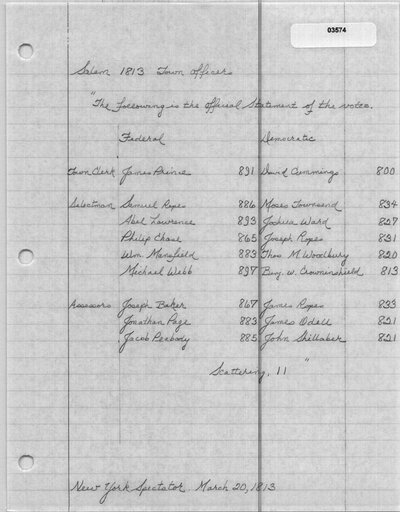 03574
Salem 1813 Town Officers
"The following is the official Statement of the votes.
Federal Democratic
Town Clerk James Prince 891 David Cummings 800
Selectman Samuel Ropes 886 Moses Townsend 834
Abel Lawrence 893 Joshua Ward 827
Philip Chase 865 Joseph Ropes 831
Wm. Mansfield 883 Thos M. Woodbury 820
Michael Webb 897 Benj. W. Crowninshield 813
Assessors Joseph Baker 867 James Ropes 833
Jonathan Page 883 James Odell 821
Jacob Peabody 885 John Shillaber 821
Scattering, 11 "
New York Spectator. March 20, 1813